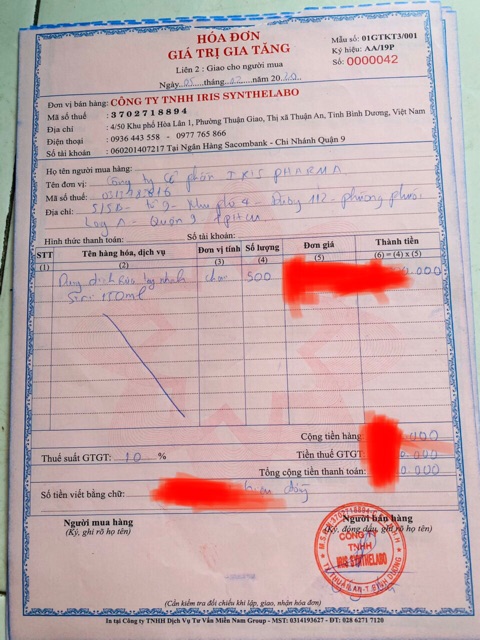 HÓA ĐƠN
GIÁ TRỊ GIA TĂNG
Liên 2 : Giao cho người mua
Ngày 05 tháng 02 năm 2020
Mẫu số: 01GTKT3/001
Ký hiệu: AA/19P
Số: 0000042
Đơn vị bán hàng: CÔNG TY TNHH IRIS SYNTHELABO
Mã số thuế : 3702718894
Địa chỉ : 4/50 Khu phố Hòa Lân 1, Phường Thuận Giao, Thị xã Thuận An, Tỉnh Bình Dương, Việt Nam
Điện thoại : 0936 443 558 - 0977 765 866
Số tài khoản : 060201407217 Tại Ngân Hàng Sacombank - Chi Nhánh Quận 9
Họ tên người mua hàng:
Tên đơn vị: Công ty Cổ phần IRIS PHARMA
Mã số thuế:
Địa chỉ: Khu phố 4 - Đường 112 - phường phước
Long A - Quận 9 TPHCM
Hình thức thanh toán: Số tài khoản:
STT Tên hàng hóa, dịch vụ Đơn vị tính Số lượng Đơn giá Thành tiền
(1) (2) (3) (4) (5) (6) = (4) x (5)
Dung dịch rửa tay nhanh chai 500 .000
150ml
Cộng tiền hàng: .000
Thuế suất GTGT: 10 % Tiền thuế GTGT: .000
Tổng cộng tiền thanh toán: 0.000
Số tiền viết bằng chữ: đồng
Người mua hàng Người bán hàng
(Ký, ghi rõ họ tên) (Ký, đóng dấu, ghi rõ họ tên)
M.S.D.N: 3702718894
CÔNG TY
TNHH
IRIS SYNTHELABO
TX.THUẬN AN - T.BÌNH DƯƠNG
(Cần kiểm tra đối chiếu khi lập, giao, nhận hóa đơn)
In tại Công ty TNHH Dịch Vụ Tư Vấn Miền Nam Group - MST: 0314193627 - ĐT: 028 6271 7120